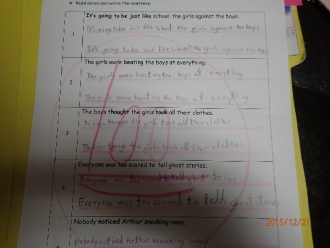 Read aloud and write the sentence.
1
It's going to be just like school: the girls against the boys.
the girls against the boys
the girls against the boys
2
The girls were beating the boys at everything.
The girls were beating the boys at everything
The girls were beating the boys at everything
3
The boys thought the girls took all their clothes.
the girls took all their clothes
the girls took all their clothes
4
Everyone was too scared to tell ghost stories.
Everyone was too scared to tell
Everyone was too scared to tell ghost stories
Nobody noticed Arthur sneaking away.
Nobody noticed Arthur sneaking away
2015/12/2